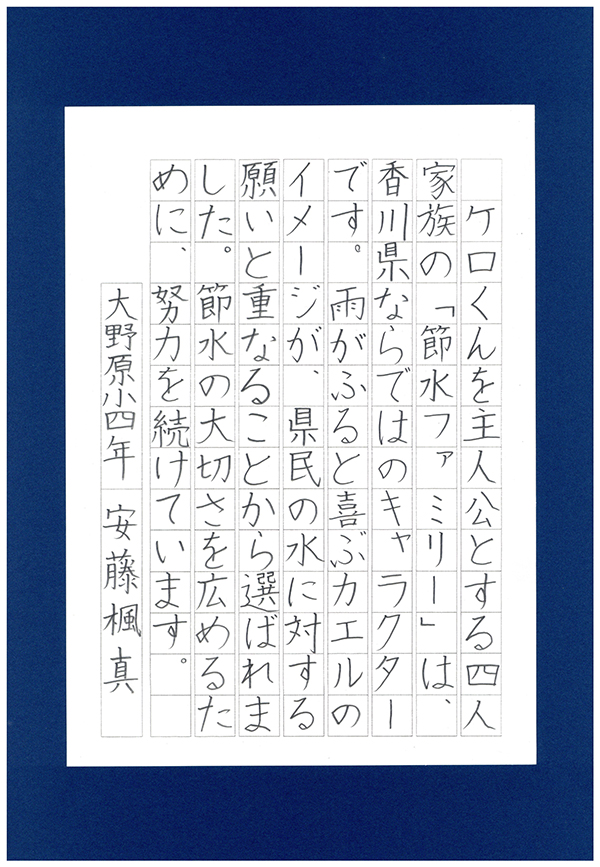 ケロくんを主人公とする四人
家族の「節水ファミリー」は、
香川県ならではのキャラクター
です。雨がふると喜ぶカエルの
イメージが、県民の水に対する
願いと重なることから選ばれま
した。節水の大切さを広めるた
めに、努力を続けています。
大野原小四年 安藤楓真